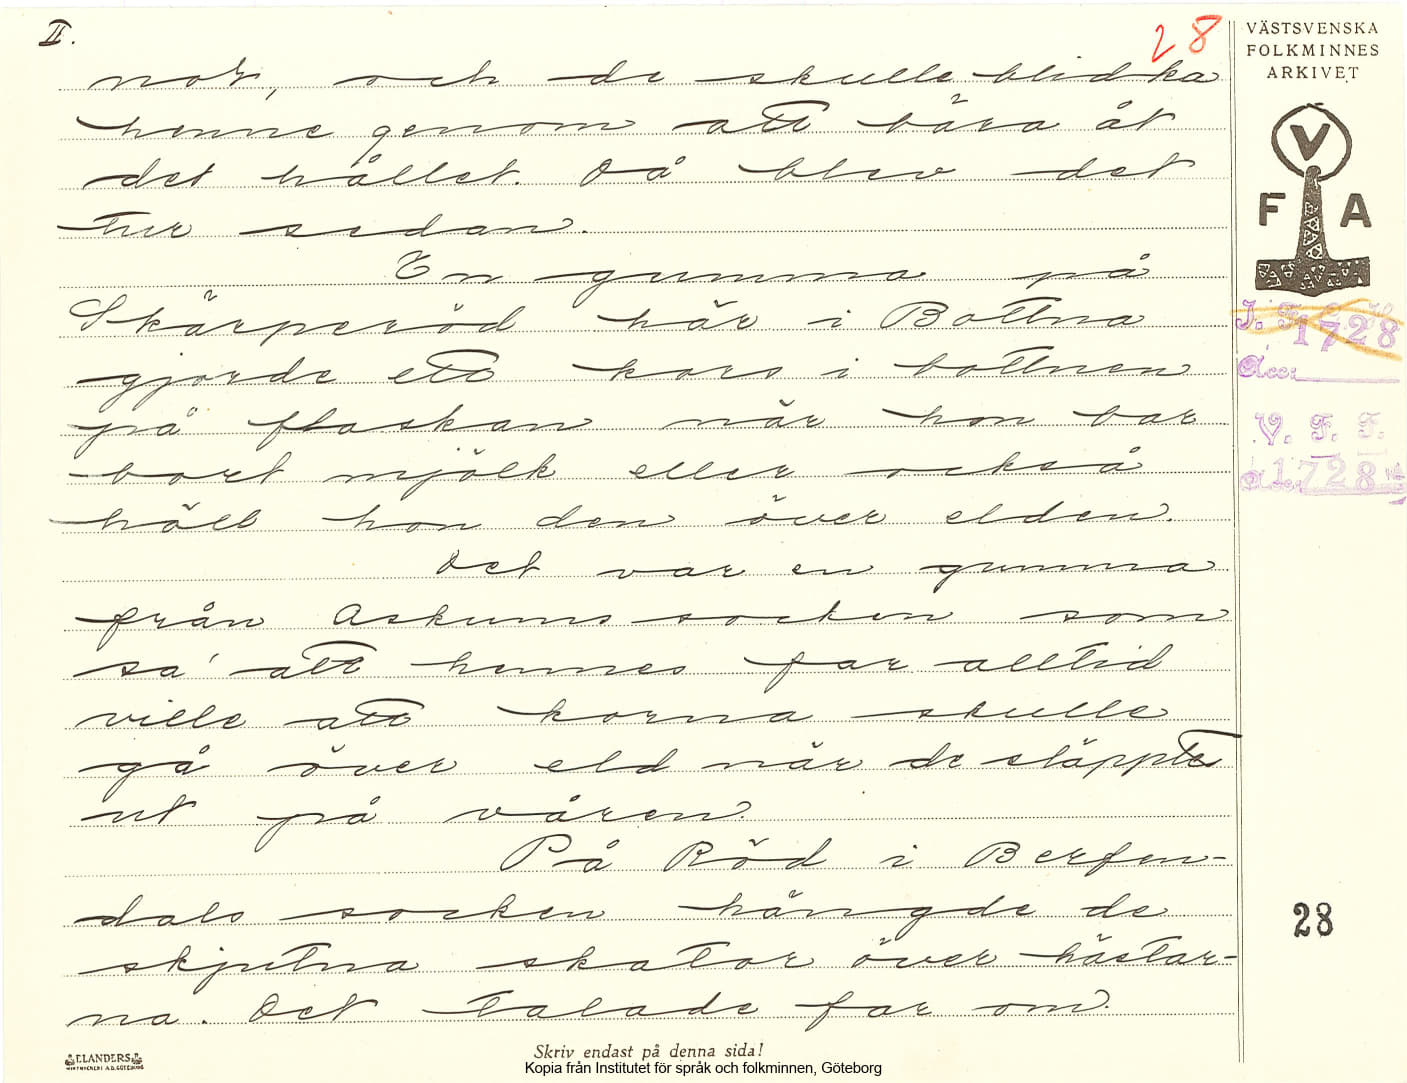 II.
28
nor, och de skulle blidka
henne genom att bära åt
det hållet. Då blev det
tur sedan.
En gumma på
Skärperöd här i Bottna
gjorde ett kors i bottnen
på flaskan när hon bar
bort mjölk eller också
höll hon den över elden.
Det var en gumma
från Askums socken som
sa' att hennes far alltid
ville att korna skulle
gå över eld när de släppte
ut på våren.
På Röd i Berfen-
dals socken hängde de
skjutna skator över hästar-
na. Det talade far om.
VÄSTSVENSKA
FOLKMINNES
ARKIVET
V
F A
1728
Acc:
V. F. F.
1728
28
Skriv endast på denna sida!
ELANDERS
Kopia från Institutet för språk och folkminnen, Göteborg